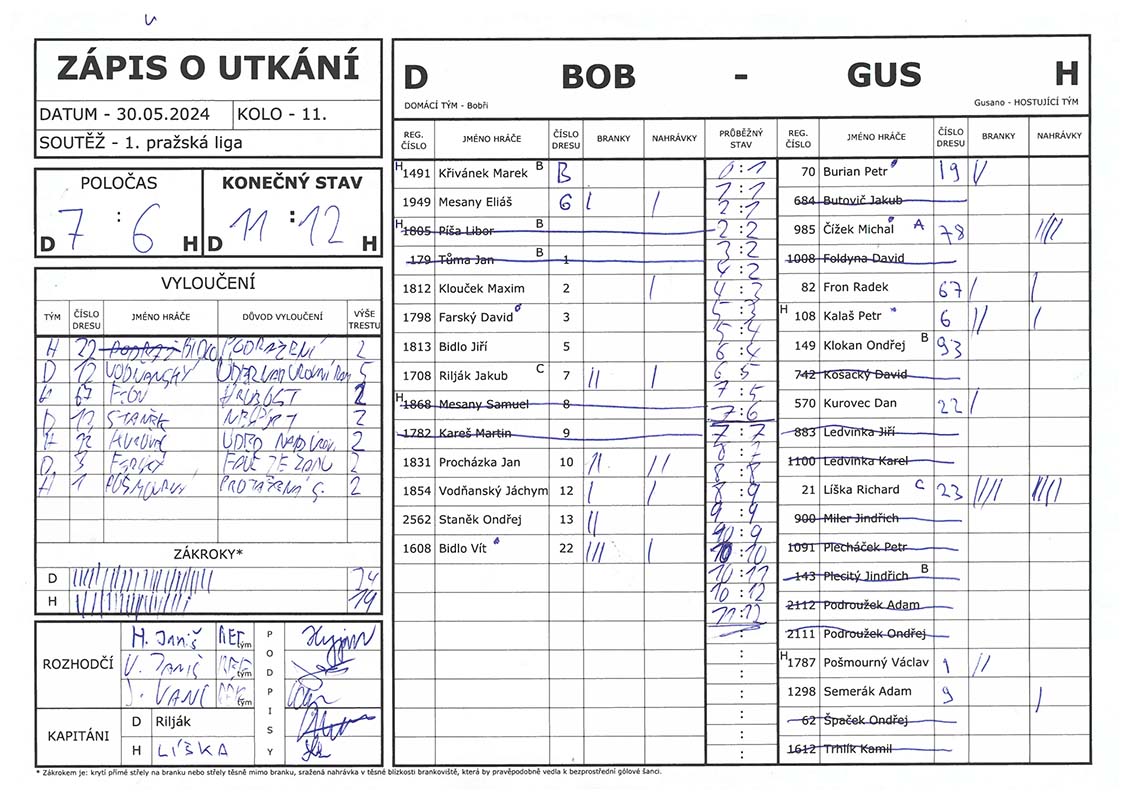 ZÁPIS O UTKÁNÍ
DATUM - 30.05.2024 KOLO - 11.
SOUTĚŽ - 1. pražská liga
POLOČAS KONEČNÝ STAV
D 7 : 6 H D 11 : 12 H
VYLOUČENÍ
TÝM ČÍSLO DRESU JMÉNO HRÁČE DŮVOD VYLOUČENÍ VÝŠE TRESTU
H 22 BIDLO PODRAŽENÍ 2
D 12 VODŇANSKÝ 5
67 HRUBOST 2
D 13 STANĚK 2
H 22 2
D 3 2
H 1 POŠMOURNÝ 2
ZÁKROKY*
D 24
H 19
ROZHODČÍ H. Janiš tým
V. Janiš tým
J. VANC tým
PODPISY
KAPITÁNI D Rilják
H LÍŠKA
D BOB - GUS H
DOMÁCÍ TÝM - Bobři Gusano - HOSTUJÍCÍ TÝM
REG. ČÍSLO JMÉNO HRÁČE ČÍSLO DRESU BRANKY NAHRÁVKY PRŮBĚŽNÝ STAV REG. ČÍSLO JMÉNO HRÁČE ČÍSLO DRESU BRANKY NAHRÁVKY
H 1491 Křivánek Marek B B
1949 Mesany Eliáš 6 I I
H 1805 Píša Libor B
179 Tůma Jan B 1
1812 Klouček Maxim 2 I
1798 Farský David 3
1813 Bidlo Jiří 5
1708 Rilják Jakub C 7 II I
H 1868 Mesany Samuel 8
1782 Kareš Martin 9
1831 Procházka Jan 10 II II
1854 Vodňanský Jáchym 12 I I
2562 Staněk Ondřej 13 II
1608 Bidlo Vít 22 III I
0:1
1:1
2:1
2:2
3:2
4:2
4:3
5:3
5:4
6:4
6:5
7:5
7:6
7:7
8:7
8:8
8:9
9:9
10:9
10:10
10:11
10:12
11:12
70 Burian Petr 19 I
684 Butovič Jakub
985 Čížek Michal A 78 IIII
1008 Foldyna David
82 Fron Radek 67 I I
H 108 Kalaš Petr 6 II I
149 Klokan Ondřej B 93
742 Kosacký David
570 Kurovec Dan 22 I
883 Ledvinka Jiří
1100 Ledvinka Karel
21 Líška Richard C 23 IIII
900 Miler Jindřich
1091 Plecháček Petr
143 Plecitý Jindřich B
2112 Podroužek Adam
2111 Podroužek Ondřej
H 1787 Pošmourný Václav 1 II
1298 Semerák Adam 9 I
62 Špaček Ondřej
1612 Trhlík Kamil
* Zákrokem je: krytí přímé střely na branku nebo střely těsně mimo branku, sražená nahrávka v těsné blízkosti brankoviště, která by pravěpodobně vedla k bezprostřední gólové šanci.